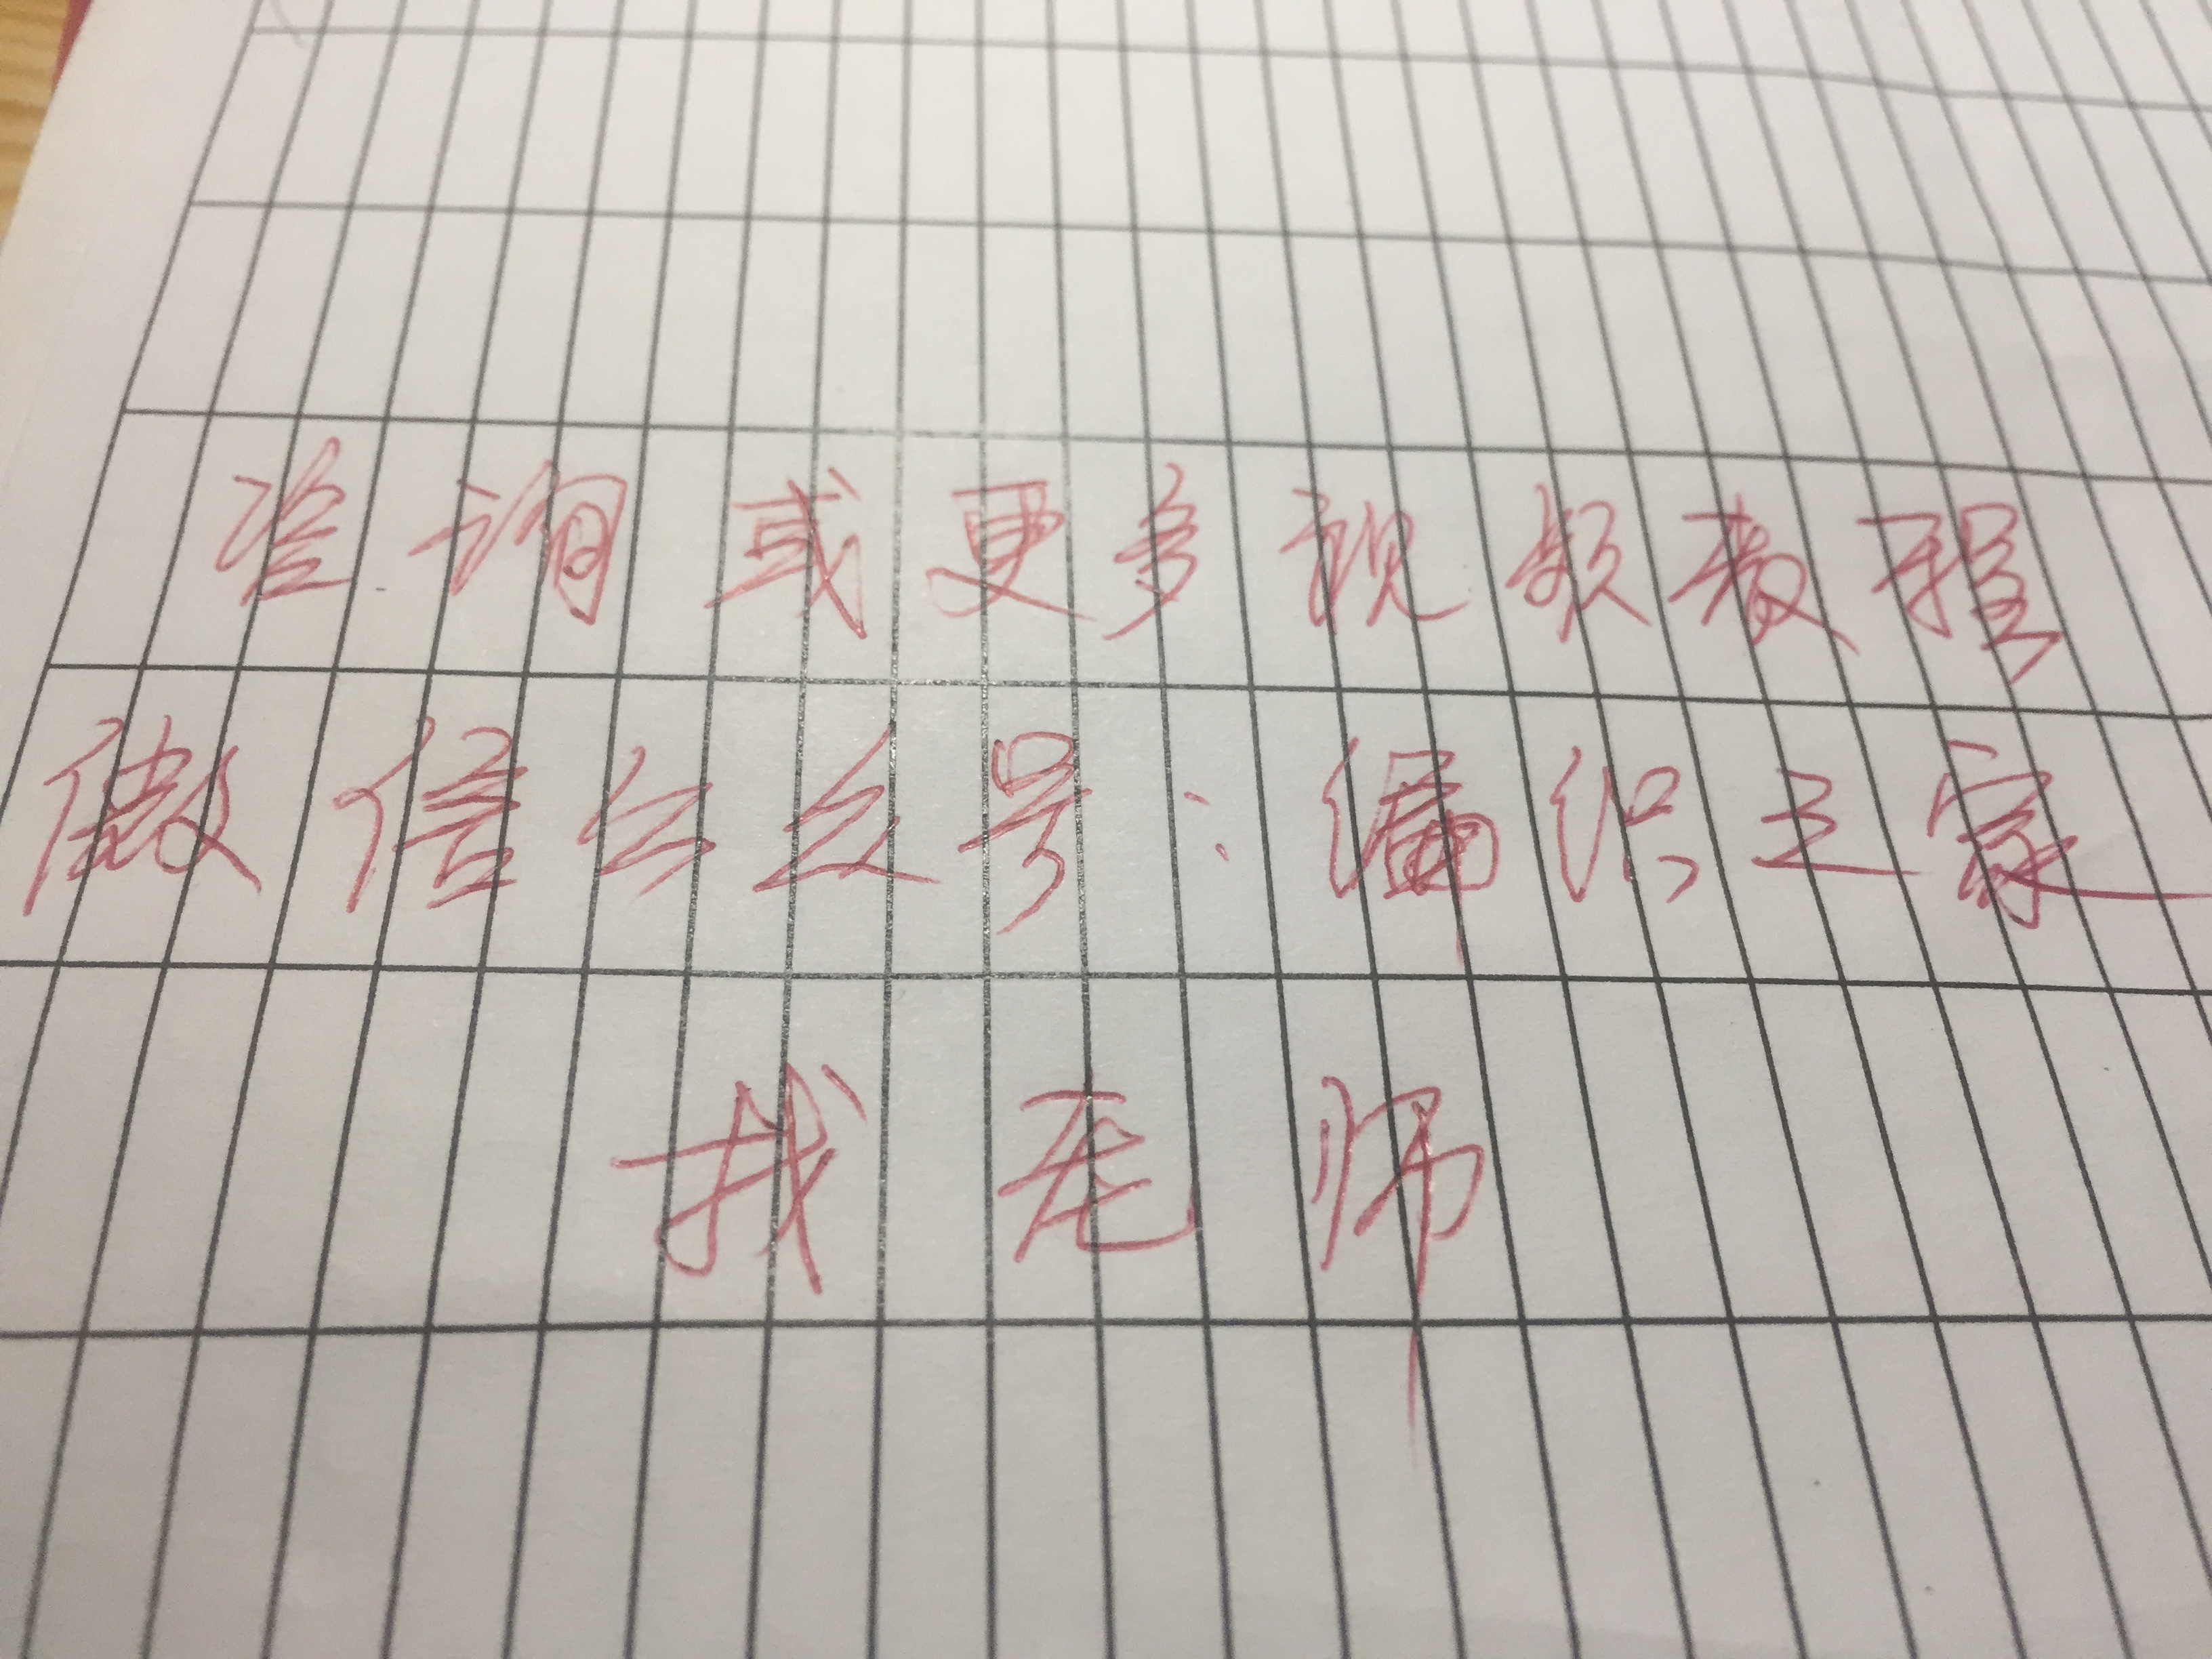 咨询或更多视频教程
微信公众号：编织之家
找毛师